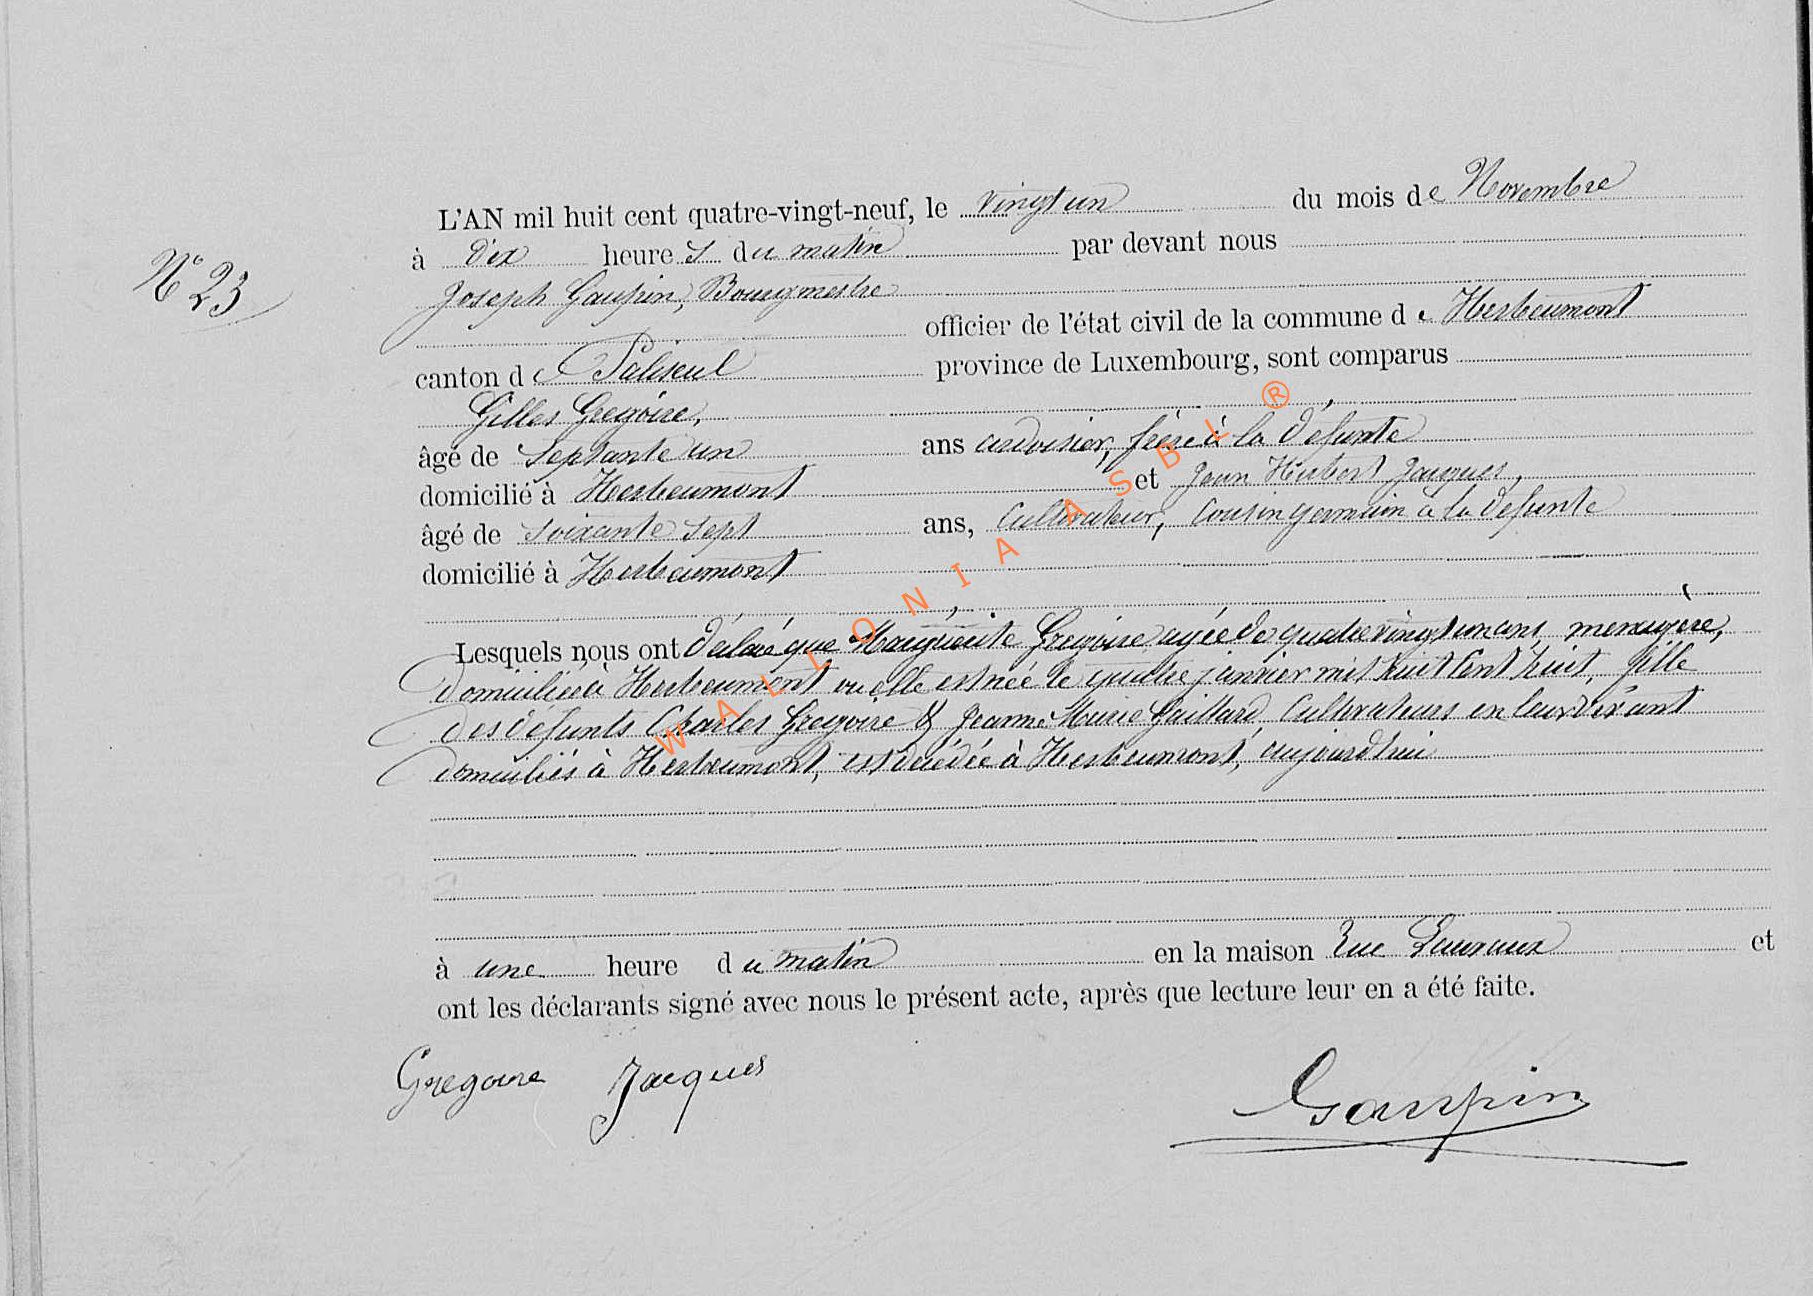 L'AN mil huit cent quatre-vingt-neuf, le vingt un du mois de Novembre
N° 23
à dix heures du matin par devant nous
Joseph Gaupin, Bourgmestre
officier de l'état civil de la commune de Herbeumont
canton de Paliseul province de Luxembourg, sont comparus
Gilles Gregoire,
âgé de septante un ans ardoisier, frère à la défunte
domicilié à Herbeumont et Jean Hubert Jacques,
âgé de soixante sept ans, cultivateur, cousin germain à la défunte
domicilié à Herbeumont
Lesquels nous ont déclaré que Marguerite Gregoire agée de quatre vingt un ans menagère,
domiciliée à Herbeumont où elle est née le quatre janvier mil huit cent huit, fille
des défunts Charles Gregoire & Jeanne Marie Gaillard, cultivateurs en leur vivant
domiciliés à Herbeumont, est décédée à Herbeumont, aujourd'hui
à une heure du matin en la maison rue et
ont les déclarants signé avec nous le présent acte, après que lecture leur en a été faite.
Gregoire Jacques Gaupin
WALLONIA ASBL ®